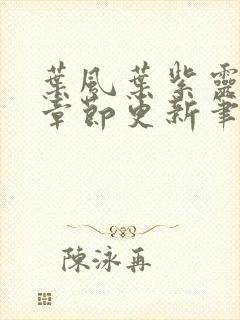 葉風葉紫靈
章節更新筆
陳泳再